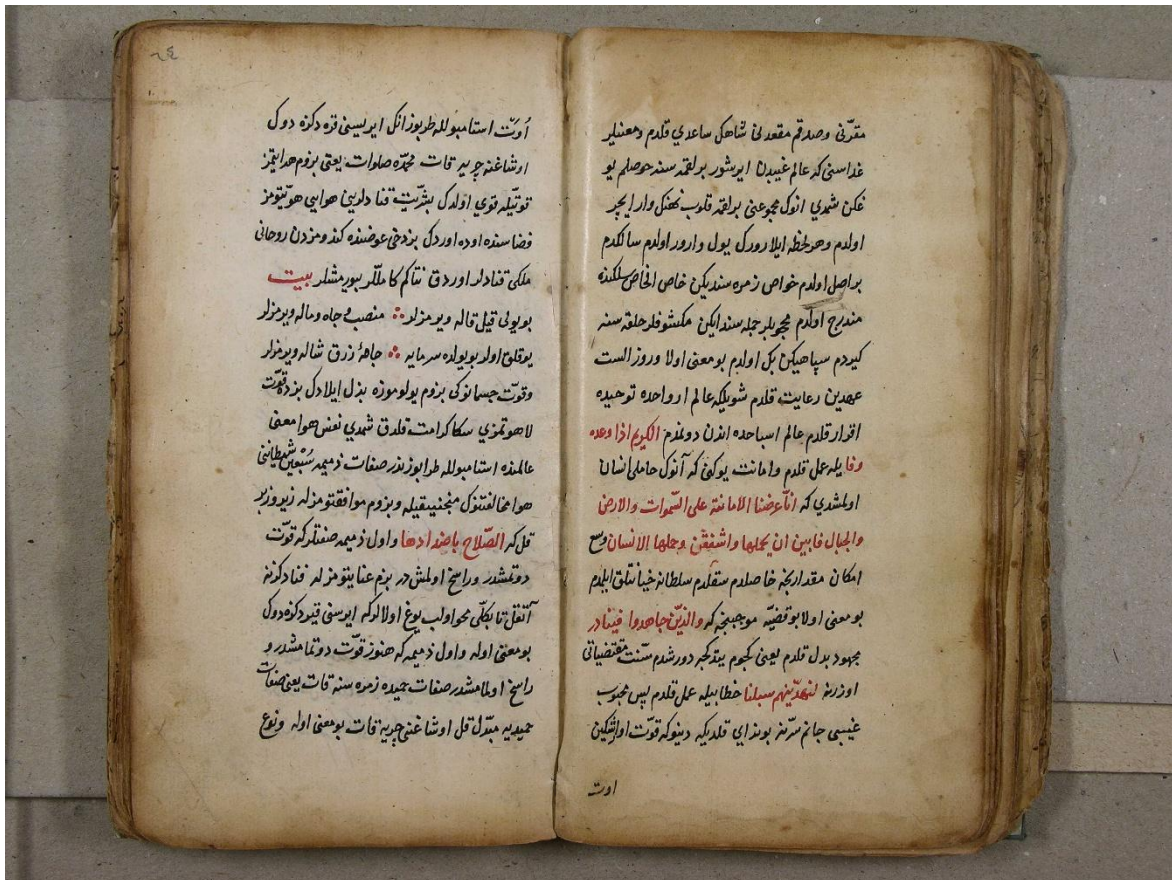 مقرّنى وصدقم مقعدنى شاهكل ساعدي قلدم ومعنيلر
غداسنى كه عالم غيبدن ايرشور بر لقمه سنه حوصلم يو
غكن شمدي انوك مجموعنى بر لقمه قلوب نهنكل وار ايجر
اولدم وهر لحظه ايلا رورك يول وارور اولدم سالكدم
بر اصل اولدم خواص زمره سنديكن خاص الخاص سلكنده
مندرج اولدم محجوبلر جمله سندايكن مكشوفلر حلقه سنه
كيردم سپاهيكن بك اولدم بو معنى اولا وروز الست
عهدين رعايت قلدم شويلكه عالم ارواحده توحيده
اقرار قلدم عالم اسباحده اندن دونمدم الكريم اذا وعده
وفا يله عمل قلدم وامانت يوكنى كه آنوك حاملى انسان
اولمشدي كه انّا عرضنا الامانة على السّموات والارض
والجبال فابين ان يحملها واشفقن وحملها الانسان وسع
امكان مقدارنجه خاصلدم سقلدم سلطانه خيانتلق ايلمدم
بو معنى اولا بو قضيّه موجبنجه كه والذين جاهدوا فينا در
مجهود بدل قلدم يعنى كجوم يتدكجه دورشدم سنّت مقتضياتى
اوزرنه لنهدينهم سبلنا خطابيله عمل قلدم پس محبوب
غيبى جانم سرّنه بو نداي قلديكه دينوكه قوّت اولشكين
اوت
اُوت استامبوللە طربوزانكل ايريسنى قره دكزه دوك
اوشاغنه چريه قات محمّده صلوات يعنى بزوم هدايتمز
قوتيله قوي اولدك بشريّت قنادلرين هوايى هويّتومز
فضاسنده اوده اوردك بز دخى عوضنده كندومزدن روحانى
ملكى قنادلر اوردق نتاكم كاملّر بيورمشلر بيت
بو يولى قيل قاله ويرمزلر ⁖ منصب وجاه وماله ويرمزلر
يوقلق اولر بو يولده سرمايه ⁖ جامۀ زرق شاله ويرمزلر
وقوّت جسمانوكى بزوم يولوموزه بذل ايلادك بز ده قوّت
لاهوتمزي سكا كرامت قلدق شمدي نفس هوا معنى
عالمنده استامبوللە طرابوزندر صفات ذميمه سبعين شيطاننى
هوا مخالفتنوك منجنيقيله وبزوم موافقتومزله زير وزبر
قل كه الصّلاح باضدادها واول ذميمه صفتلر كه قوّت
دوتمشدر وراسخ اولمش در بزم عنايتومزله فنا دكزنه
آتغل تا بكلّى محو اولب يوغ اولالر كه ايرسنى قيو دكزه دوك
بو معنى اوله واول ذميمه كه هنوز قوّت دوتمامشدر و
راسخ اولمامشدر صفات حميده زمره سنه قات يعنى صفات
حميديه مبدّل قل اوشاغنى چريه قات بو معنى اوله ونوع